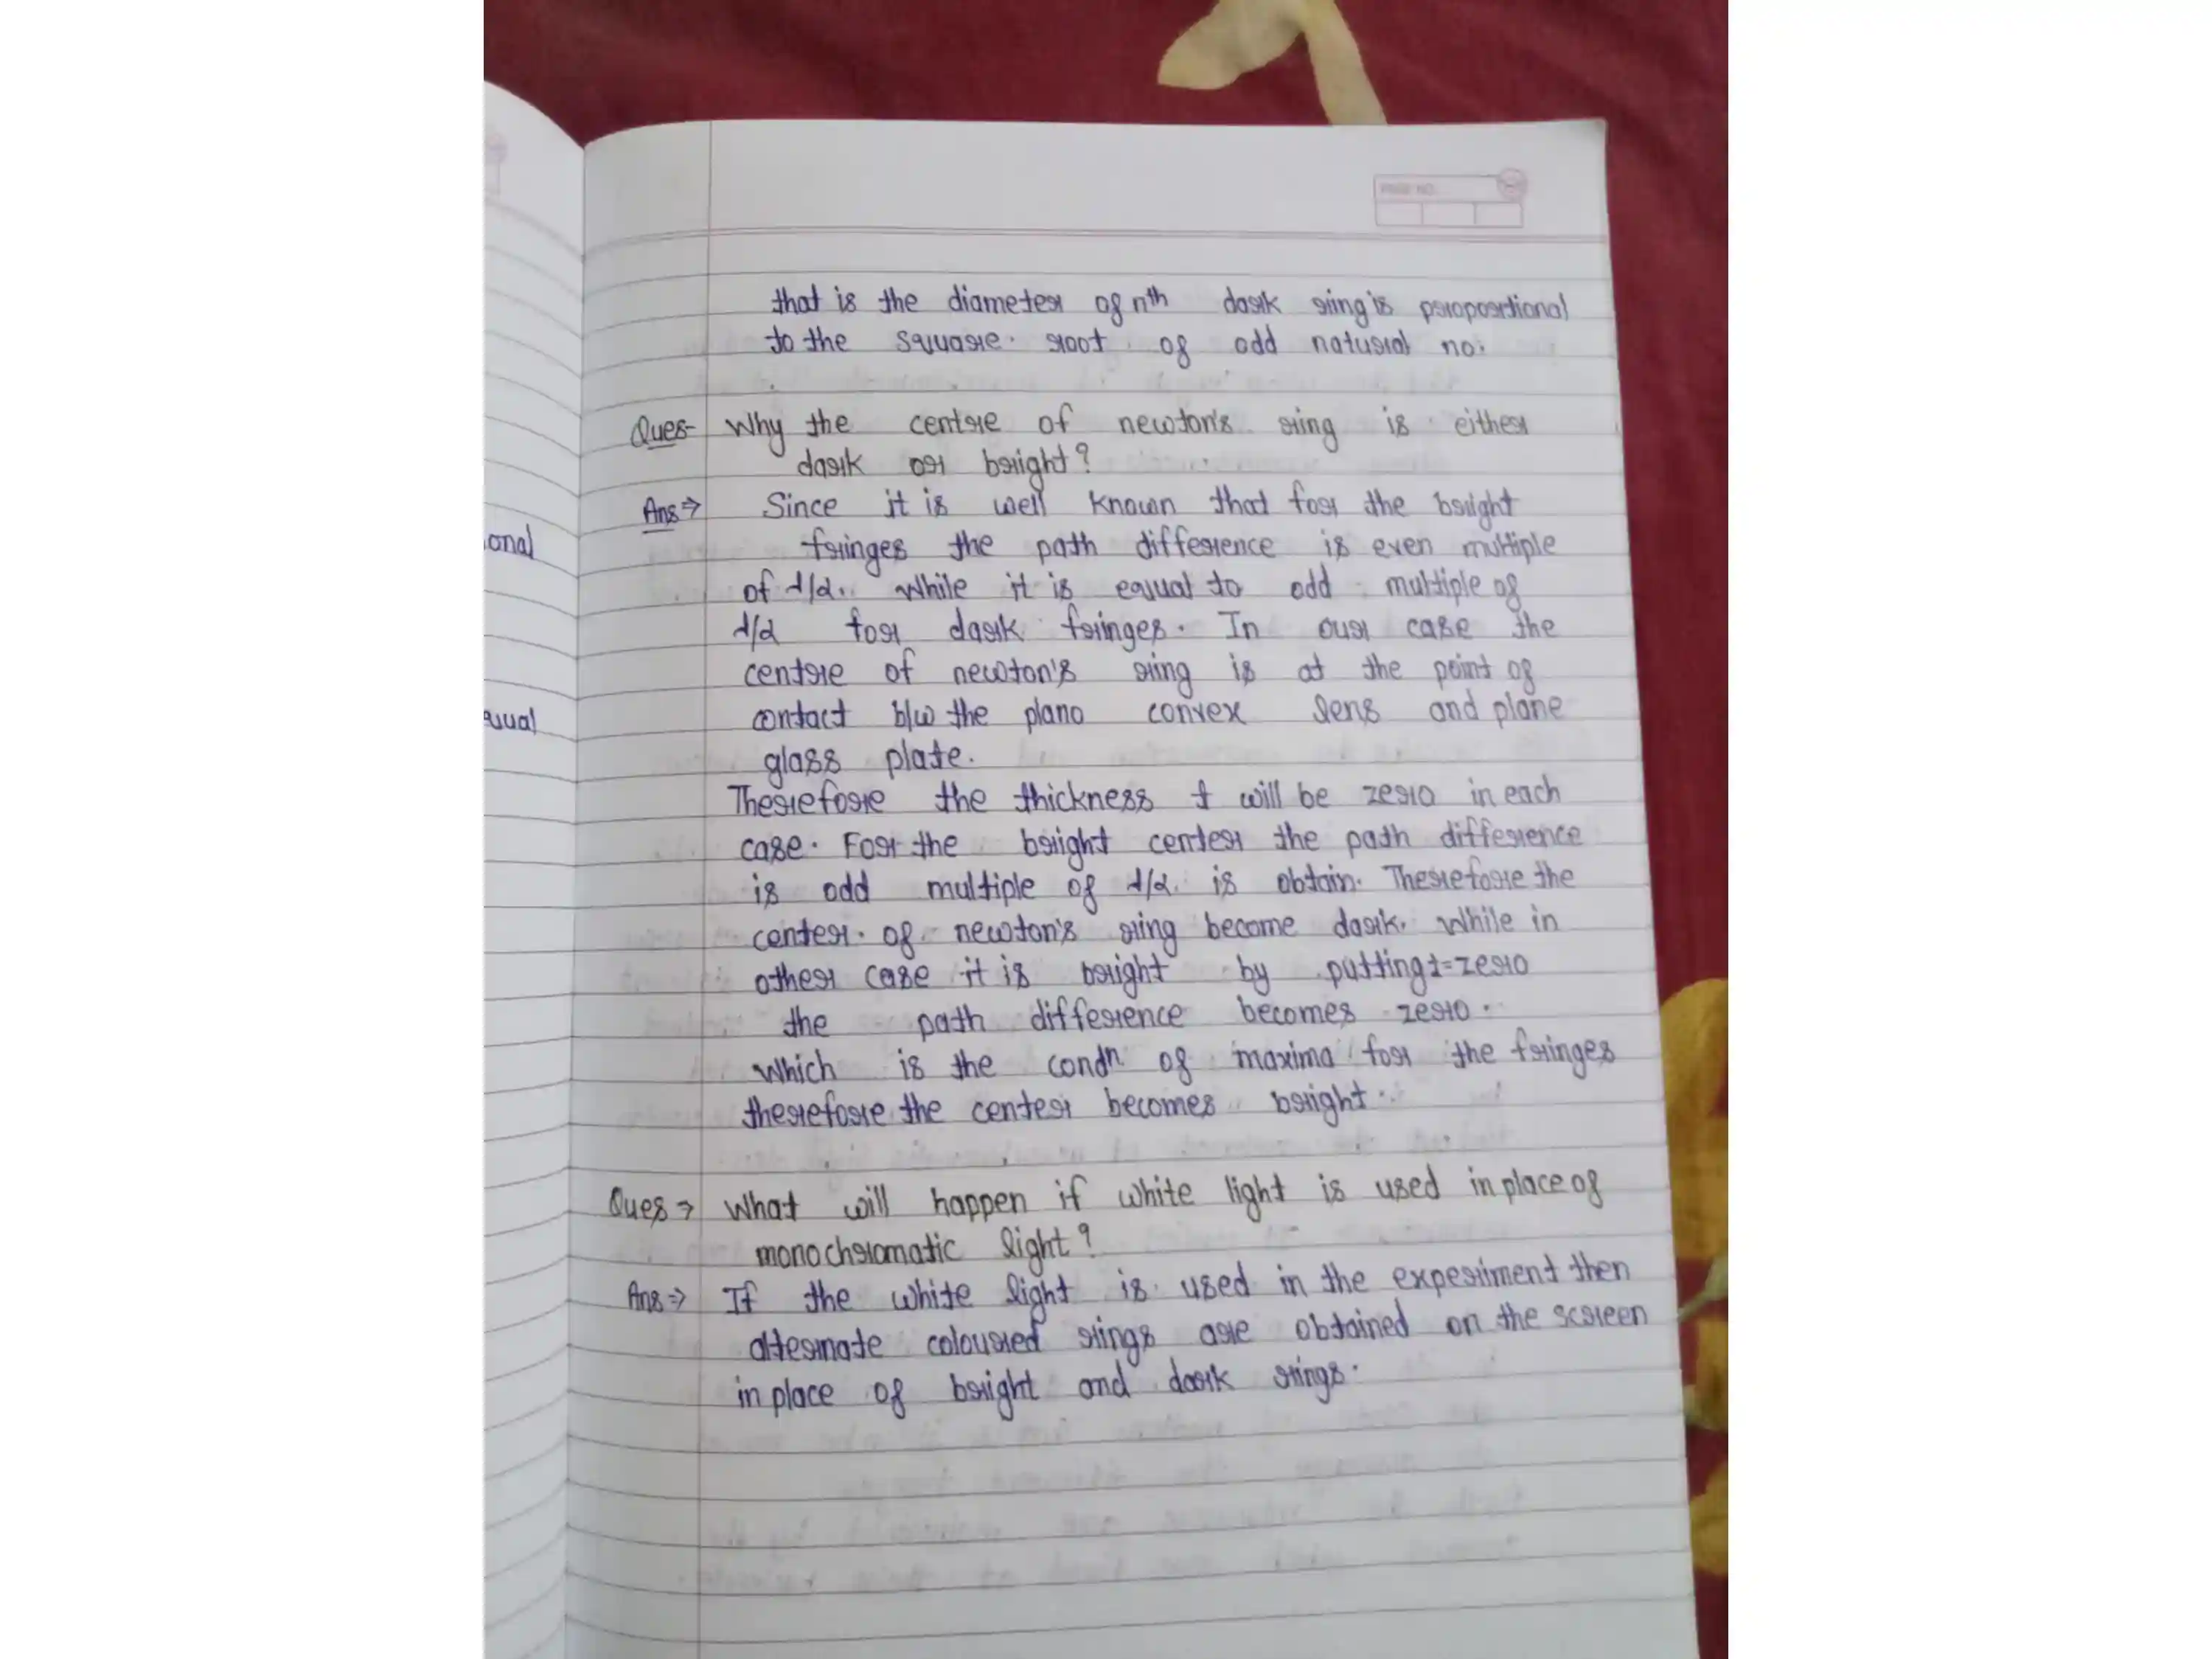 PAGE NO.
that is the diameter of nth dark ring is proportional
to the square root of odd natural no.
Ques- Why the centre of newton's ring is either
dark or bright?
Ans⇒ Since it is well known that for the bright
onal
fringes the path difference is even multiple
of λ/2. While it is equal to odd multiple of
λ/2 for dark fringes. In our case the
centre of newton's ring is at the point of
qual
contact b/w the plano convex lens and plane
glass plate.
Therefore the thickness t will be zero in each
case. For the bright center the path difference
is odd multiple of λ/2. is obtain. Therefore the
center of newton's ring become dark. While in
other case it is bright by putting t=zero
the path difference becomes zero.
which is the condn of maxima for the fringes
therefore the center becomes bright.
Ques → What will happen if white light is used in place of
monochromatic light?
Ans ⇒ If the white light is used in the experiment then
alternate coloured rings are obtained on the screen
in place of bright and dark rings.